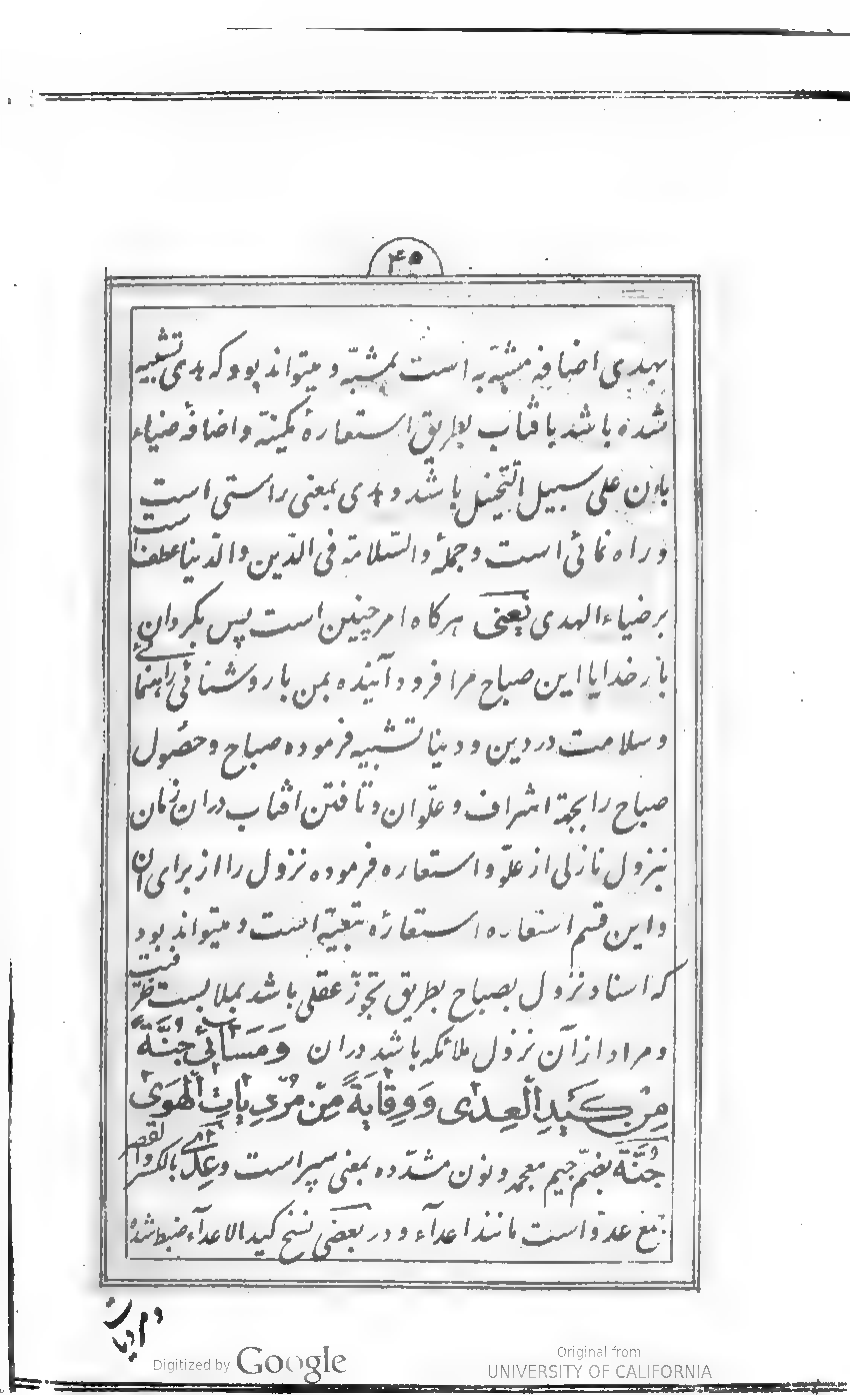 ۴۵
بهدی اضافه مشبّه به است بمشبّه و میتواند بود که هدی تشبیه
شده باشد بافتاب بطریق استعارهٔ مکینّه و اضافهٔ ضیاء
باون علی سبیل التّخییل باشد و هدی بمعنی راستی است
و راه نمائی است و جملهٔ والسّلامة فی الدّین والدّنیا عطفست
بر ضیاء الهدی یعنی هرکاه امر چنین است پس بکردان
بار خدایا این صباح مرا فرود آینده بمن با روشنائی راهنمائے
و سلامت در دین و دنیا تشبیه فرموده صباح و حصول
صباح را بجهة اشراف و علّوان و تافتن افتاب دران زمان
بنزول نازلی از علّو و استعاره فرموده نزول را از برای ان
و این قسم استعاره استعارهٔ تبعیّه است و میتواند بود
که اسناد نزول بصباح بطریق تجوّز عقلی باشد بملابست ظرفیّت
و مراد از آن نزول ملائکه باشد دران وَمَسَائی جُنَّةً
مِنْ کَیْدِ الْعِدٰی وَوِقَایَةً مِنْ مُرْدِیَاتِ الْهَوٰی
جُنّة بضمّ جیم معجمه و نون مشدّده بمعنی سپر است وعِدٰی بالکسر والقصر
جمع عدوّ است مانند اعدآء و در بعضی نسخ کید الاعدآء ضبط شده
Digitized by Google
Original from
UNIVERSITY OF CALIFORNIA